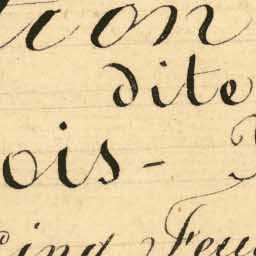 tion
dite
ois-
cinq Feu